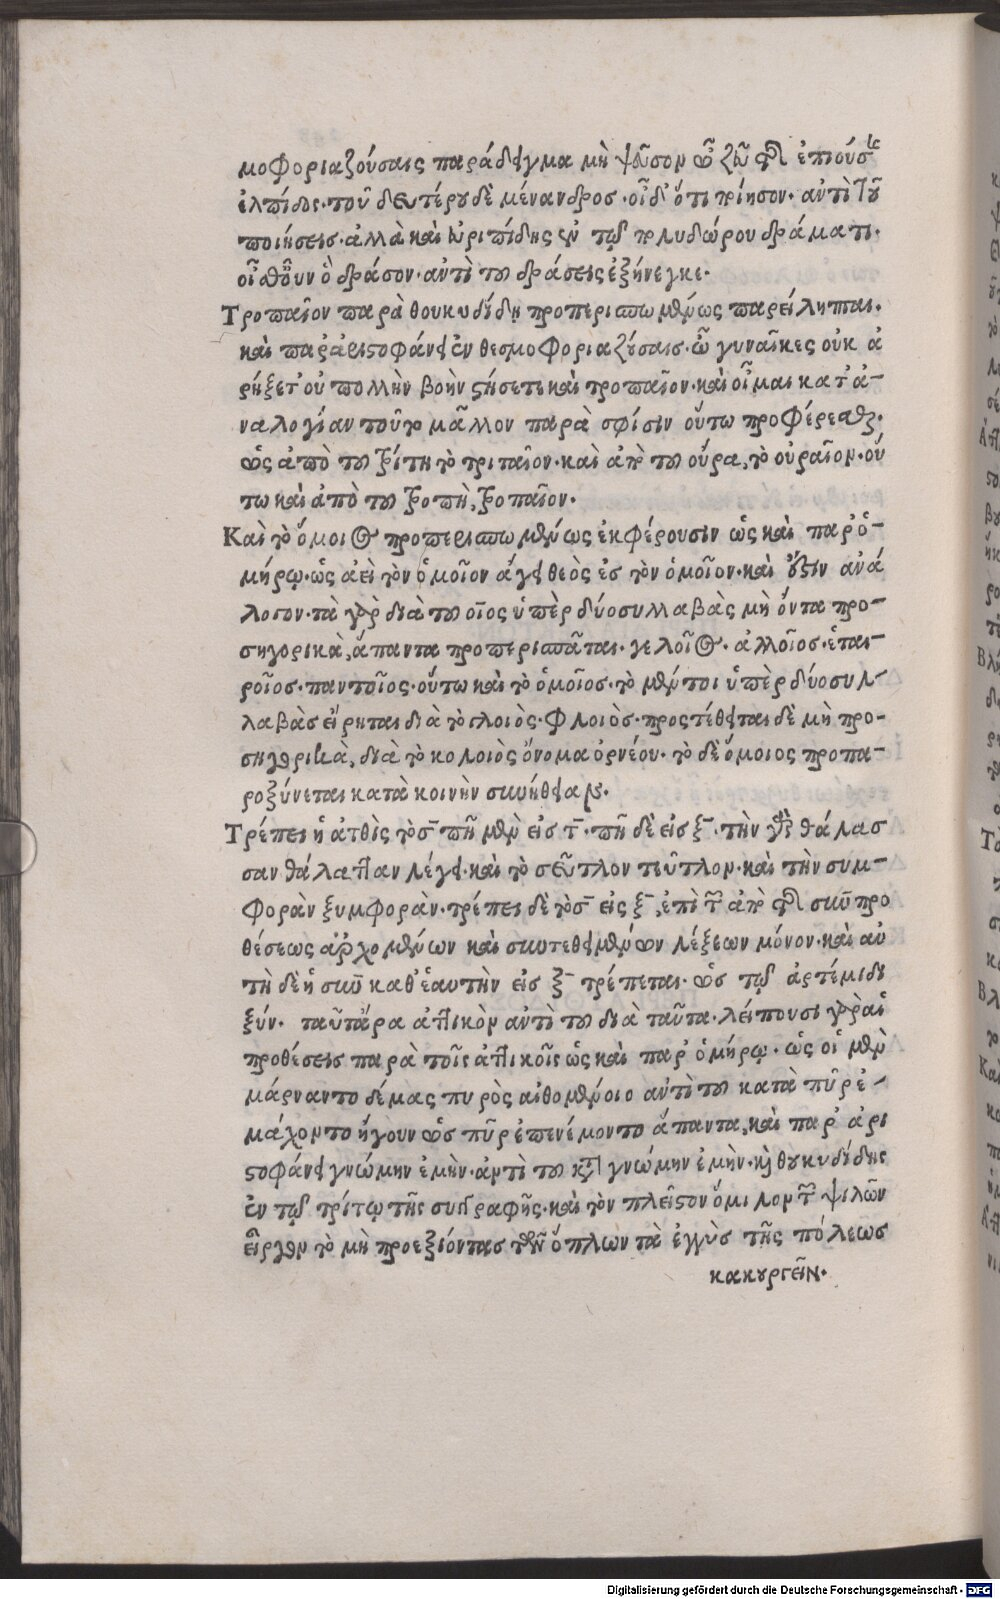 μοφοριαζούσαις παράδειγμα μὴ ψεῦσον ὦ ζεῦ τῆς ἐπιούσης
ἐλπίδος. τοῦ δευτέρου δὲ μένανδρος. οἶδ' ὅτι ποίησον. αὐτὶ τοῦ
ποιήσεις. ἀλλὰ καὶ εὐριπίδης ἐν τῷ πολυδώρου δράματι.
οἶσθ' οὖν ὃ δράσον. αὐτὶ του δράσεις ἐξήνεγκε.
Τροπαῖον παρὰ θουκυδίδῃ προπερισπωμένως παρείληπται.
καὶ παρ' ἀριστοφάνει ἐν θεσμοφοριαζούσαις. ὦ γυναῖκες οὐκ ἀ
ρήξετ' οὐ πολλὴν βοὴν στήσετε καὶ τροπαῖον. καὶ οἶμαι κατ' ἀ-
ναλογίαν τοῦτο μᾶλλον παρὰ σφίσιν οὕτω προφέρεσθαι.
ὡς ἀπὸ του τρίτη τὸ τριταῖον. καὶ ἀπὸ του οὖρα, τὸ οὐραῖον. οὕ
τω καὶ ἀπὸ του τροπὴ, τροπαῖον.
Καὶ τὸ ὅμοιος προπερισπωμένως ἐκφέρουσιν ὡς καὶ παρ' ὁ-
μήρῳ. ὡς ἀεὶ τὸν ὁμοῖον ἄγει θεὸς ἐς τὸν ὁμοῖον. καὶ ἔστιν ἀνά
λογον. τὰ γὰρ διὰ του οῖος ὑπὲρ δύο συλλαβὰς μὴ ὄντα προ-
σηγορικὰ, ἅπαντα προπερισπᾶται. γελοῖος. ἀλλοῖος. ἑται-
ροῖος. παντοῖος. οὕτω καὶ τὸ ὁμοῖος. τὸ μέντοι ὑπὲρ δύο συλ-
λαβὰς εἴρηται διὰ τὸ γλοιὸς. φλοιὸς. προστέθειται δὲ μὴ προ-
σηγορικὰ, διὰ τὸ κολοιὸς ὄνομα ὀρνέου. τὸ δὲ ὅμοιος προπα-
ροξύνεται κατὰ κοινὴν συνήθειαν.
Τρέπει ἡ ἀτθὶς τὸ σ̄ πῆ μὲν εἰς τ̄. πῆ δὲ εἰς ξ̄. τὴν γὰρ θάλασ
σαν θάλατταν λέγει. καὶ τὸ σεῦτλον τεῦτλον. καὶ τὴν συμ-
φορὰν ξυμφορὰν. τρέπει δὲ τὸ σ̄ εἰς ξ̄, ἐπὶ τῶν ἀπὸ τῆς σὺν προ
θέσεως ἀρχομένων καὶ συντεθειμένων λέξεων μόνον. καὶ αὐ
τὴ δὲ ἡ σὺν καθ' ἑαυτὴν εἰς ξ̄ τρέπεται. ὡς τῷ ἀρτέμιδι
ξύν. ταῦτ' ἄρα ἀττικὸν αὐτὶ του διὰ ταῦτα. λείπουσι γὰρ αἱ
προθέσεις παρὰ τοῖς ἀττικοῖς ὡς καὶ παρ' ὁμήρῳ. ὡς οἱ μὲν
μάρναντο δέμας πυρὸς αἰθομένοιο αὐτὶ του κατὰ πῦρ ἐ-
μάχοντο ἤγουν ὡς πῦρ ἐπενέμοντο ἅπαντα, καὶ παρ' ἀρι
στοφάνει γνώμην ἐμὴν. ἀντὶ του κατὰ γνώμην ἐμὴν. καὶ θουκυδίδης
ἐν τῷ τρίτῳ τῆς συγγραφῆς. καὶ τὸν πλεῖστον ὅμιλον τῶν ψιλῶν
εἶργον τὸ μὴ προεξιόντας τῶν ὅπλων τὰ ἐγγὺς τῆς πόλεως
κακουργεῖν.
Digitalisierung gefördert durch die Deutsche Forschungsgemeinschaft - DFG